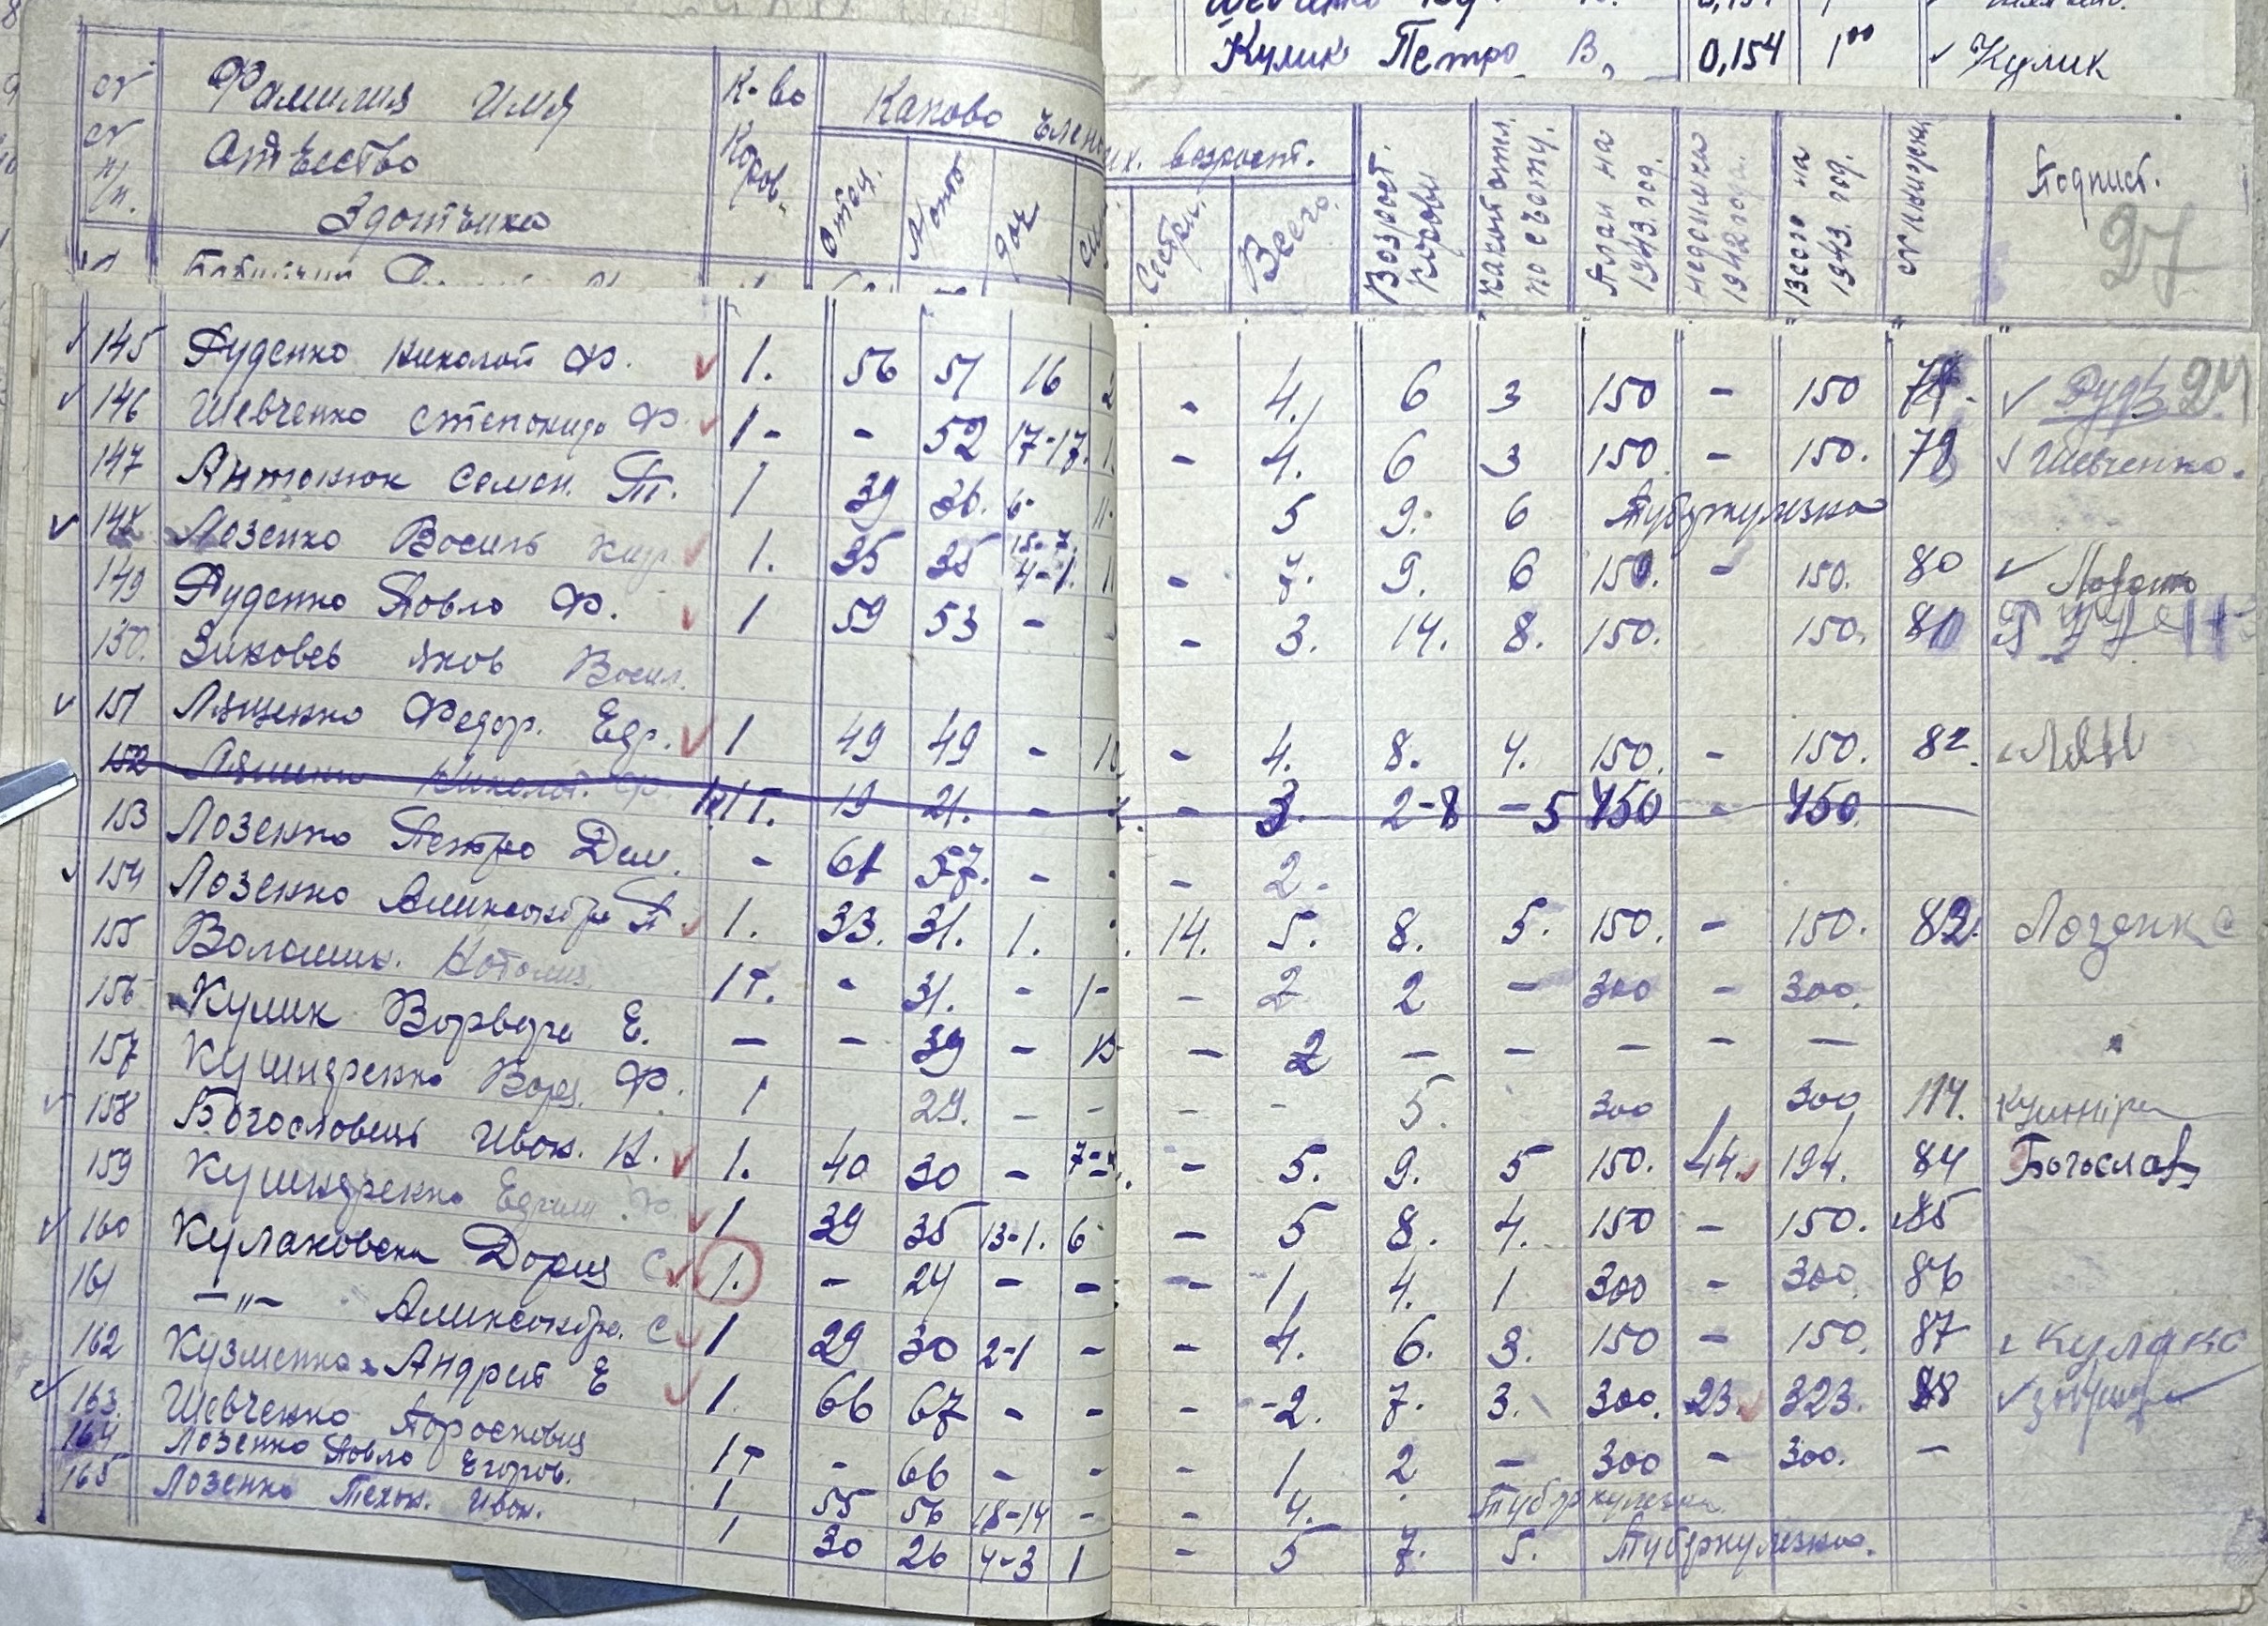 Кулик Петро В. 0,154 1⁰⁰ ✓ Кулик
№ № п/п. Фамилия Имя Отчество Здотчика К-во Коров. Каково члено их. возраст. Отец. Мать доч Сестра. Всего. Возраст. Корови какой отл. по счету. План на 1943. год. недоимка 1942 года. Всего на 1943. год. № книжки Подпист. 27
145 Руденко Николай Ф. 1. 56 51 16 2 - 4. 6 3 150 - 150 Руд 24
146 Шевченко Степонида Ф. 1 - - 52 17-17. 1. - 4. 6 3 150. - 150. 79 Шевченко.
147 Антонюк Семен. Т. 1 39 36. 6- 11. 5 9. 6 Тубяркулезная
148 Лозенко Василь Кир. 1. 35 35 15-7. 4-1. 1 - 7. 9. 6 150. - 150. 80 Лозенко
149 Руденко Павло Ф. 1 59 53 - - - 3. 14. 8. 150. 150. 81
150. Зиковев Яков Васил.
151 Лященко Федор. Едр. 1 49 49 - - 4. 8. 4. 150. - 150. 82. ЛЯЩ
152 Лященко Николай. Ф. 1Т. 19 21. - 2. - 3. 2-8 - 5 150 - 150
153 Лозенко Петро Дем. - 61 57. - - - 2.
154 Лозенко Александра П 1. 33. 31. 1. . 14. 5. 8. 5. 150. - 150. 83. Лозенко
155 Волошин. Наталия 1Т. - 31. - 1- - 2 2 - 300 - 300.
156 Кулик Варвара Е. - - 39 - 15 - 2 - - - - -
157 Кушндренко Варв. Ф. 1 29. - - - 5. 300 300 114. Кушнірен
158 Богословець Иван. Н. 1. 40 30 - 7-4. - 5. 9. 5 150. 44. 194. 84 Богослав
159 Кушндренко 1 39 35 13-1. 6- - 5 8. 4. 150 - 150. 85
160 Кулаковска Дория С 1. - 24 - - - 1, 4. 1 300 - 300. 86
161 -"- Александра. С 1 29 30 2-1 - - 4. 6. 3. 150 - 150. 87 Кулако
162 Кузменко Андрей Е 1. 66 67 - - - -2. 7. 3. 300. 23. 323. 88
163. Шевченко Паросковия 1Т - 66 - - - 1 2 - 300 - 300. -
164 Лозенко Павло Егоров. 1 55 56 18-14 - - 4. Тубяркулезна.
165 Лозенко Техон. Иван. 1 30 26 4-3 1 - 5 7. 5. Тубяркулезная.